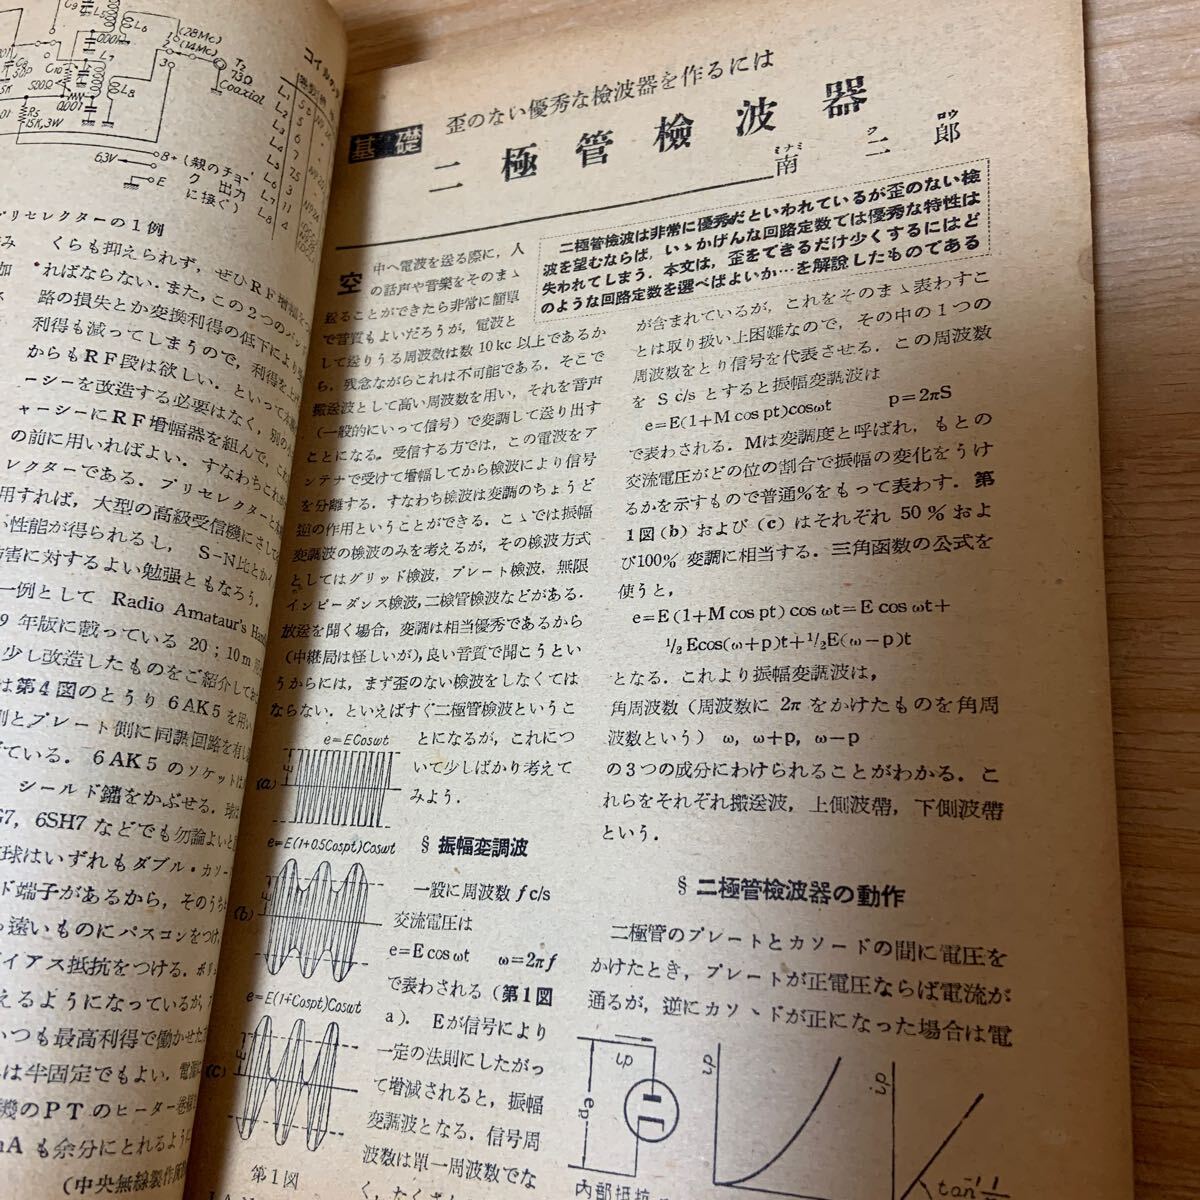 (28Mc)
(14Mc)
T2
73Ω
Coaxial
L6
L7
L8
0.001
500Ω
15K,3W
63V
B+
(親のチョー
ク 出力
に接ぐ)
E
プリセレクターの1例
くらも抑えられず，ぜひRF増幅
ればならない．また，この2つのバン
路の損失とか変換利得の低下により
利得も減ってしまうので，利得を上
からもRF段は欲しい．といって
ーシーを改造する必要はなく，別の
ャーシーにRF増幅器を組んで，これ
の前に用いればよい．すなわちこれが
レクターである．プリセレクターと
用すれば，大型の高級受信機にさして
性能が得られるし， S-N比とか
害に対するよい勉強ともなろう．
一例として Radio Amataur's
9 年版に載っている 20；10m
少し改造したものをご紹介して
は第4図のとうり 6AK5 を用い
とプレート側に同調回路を有し
ている． 6AK5 のソケットは
シールド鑵をかぶせる．球は
G7, 6SH7 などでも勿論よいと
球はいずれもダブル・カソー
ド端子があるから，そのうち
遠いものにパスコンをつけ，
イアス抵抗をつける．ボリ
えるようになっているが，
いつも最高利得で働かせた
は半固定でもよい．電源
機のPTのヒーター巻線
mA も余分にとれるように
(中央無線製作所
基礎
歪のない優秀な檢波器を作るには
二極管檢波器
南 二郎
ミナミ ロウ
二極管檢波は非常に優秀だといわれているが歪のない檢
波を望むならば，いゝかげんな回路定数では優秀な特性は
失われてしまう．本文は，歪をできるだけ少くするにはど
のような回路定数を選べばよいか…を解説したものである
空中へ電波を送る際に，人
の話声や音楽をそのまゝ
送ることができたら非常に簡単
で音質もよいだろうが，電波と
して送りうる周波数は数 10kc 以上であるか
ら，残念ながらこれは不可能である．そこで
搬送波として高い周波数を用い，それを音声
(一般的にいって信号）で変調して送り出す
ことになる．受信する方では，この電波をア
ンテナで受けて増幅してから檢波により信号
を分離する．すなわち檢波は変調のちょうど
逆の作用ということができる．こゝでは振幅
変調波の檢波のみを考えるが，その檢波方式
としてはグリッド檢波，プレート檢波，無限
インピーダンス檢波，二極管檢波などがある．
放送を聞く場合，変調は相当優秀であるから
(中継局は怪しいが)，良い音質で聞こうとい
うからには，まず歪のない檢波をしなくては
ならない．といえばすぐ二極管檢波というこ
とになるが，これにつ
いて少しばかり考えて
みよう．
e=ECosωt
(a)
E
e=E(1+0.5Cospt)Cosωt
(b)
e=E(1+Cospt)Cosωt
(c)
第1図
§ 振幅変調波
一般に周波数 f c/s
交流電圧は
e=E cos ωt ω=2πf
で表わされる (第1図
a)． Eが信号により
一定の法則にしたがっ
て増減されると，振幅
変調波となる．信号周
波数は單一周波数でな
く，たくさん
が含まれているが，これをそのまゝ表わすこ
とは取り扱い上困難なので，その中の1つの
周波数をとり信号を代表させる．この周波数
を S c/s とすると振幅変調波は
e=E(1+M cos pt)cosωt p=2πS
で表わされる．Mは変調度と呼ばれ，もとの
交流電圧がどの位の割合で振幅の変化をうけ
るかを示すもので普通%をもって表わす．第
1図 (b) および (c) はそれぞれ 50 % およ
び100% 変調に相当する．三角函数の公式を
使うと，
e=E (1+M cos pt) cos ωt=E cos ωt+
1/2 Ecos(ω+p)t+1/2E(ω−p)t
となる．これより振幅変調波は，
角周波数（周波数に 2π をかけたものを角周
波数という） ω, ω+p, ω−p
の3つの成分にわけられることがわかる．こ
れらをそれぞれ搬送波，上側波帶，下側波帶
という．
§ 二極管檢波器の動作
二極管のプレートとカソードの間に電圧を
かけたとき，プレートが正電圧ならば電流が
通るが，逆にカソードが正になった場合は電
ip
ep
内部抵抗
ip
ip
tan⁻¹ 1/